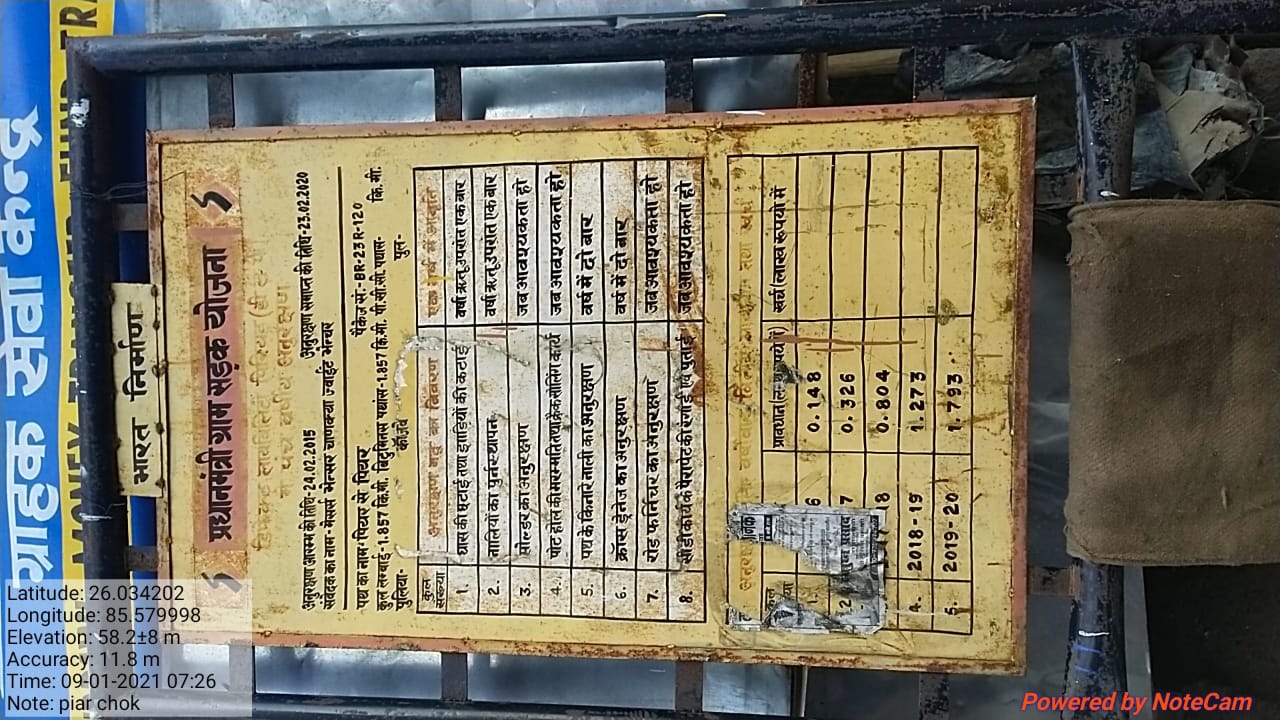 ग्राहक सेवा केन्द्र
MONEY TRANSFER FUND TRA
भारत निर्माण
प्रधानमंत्री ग्राम सड़क योजना
पंच वर्षीय अनुरक्षण
अनुरक्षण आरम्भ की तिथि-24.02.2015 अनुरक्षण समाप्त की तिथि-23.02.2020
संवेदक का नाम- मेसर्स मेन्सर ज्वाईंट भेन्चर
पथ का नाम- पियर से पियर पैकेज सं.-BR-23R-120
कुल लम्बाई-1.857 कि.मी. बिटुमिनस पथांस-1.857 कि.मी. पी.सी.सी. पथांस- कि.मी.
पुलिया- कॉजवे पुल-
कुल संख्या अनुरक्षण मद्द का विवरण एक वर्ष में
1. घास की छटाई तथा झाड़ियों की कटाई वर्षा ऋतु उपरांत एक बार
2. नालियों का पुर्नस्थापन वर्षा ऋतु उपरांत एक बार
3. सोल्डर का अनुरक्षण जब आवश्यकता हो
4. पोट होल की मरम्मति तथा क्रैक सीलिंग कार्य जब आवश्यकता हो
5. पथ के किनारे नाली का अनुरक्षण वर्ष में दो बार
6. क्रॉस ड्रेनेज का अनुरक्षण वर्ष में दो बार
7. रोड फर्नीचर का अनुरक्षण जब आवश्यकता हो
8. सी डी कार्य के पैरापेट की रंगाई एवं पुताई जब आवश्यकता हो
वर्षोवार तथा खर्च
कुल प्रावधान खर्च (लाख रूपयो में)
1. 6 0.148
2 7 0.326
18 0.804
4. 2018-19 1.273
5. 2019-20 1.793
Latitude: 26.034202
Longitude: 85.579998
Elevation: 58.2±8 m
Accuracy: 11.8 m
Time: 09-01-2021 07:26
Note: piar chok
Powered by NoteCam